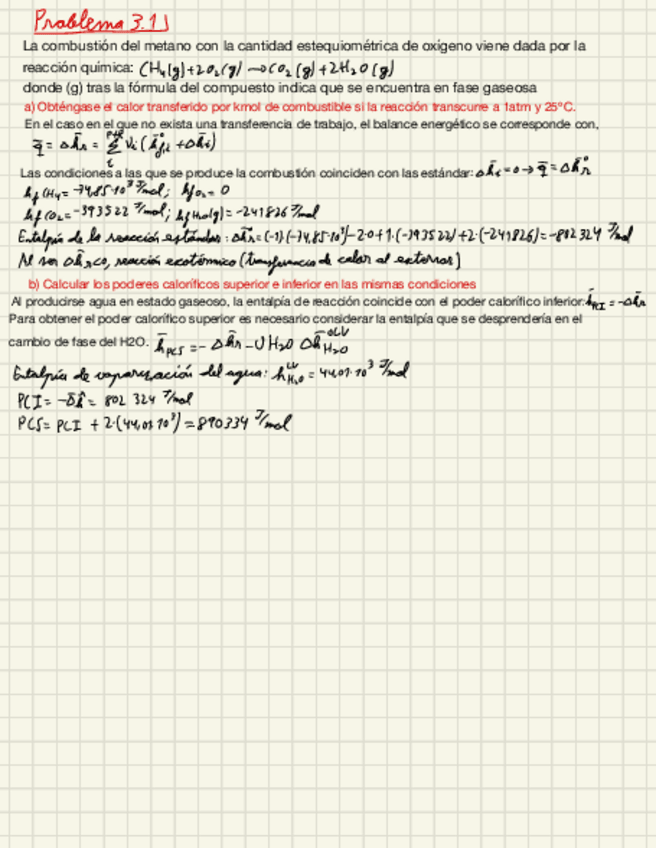 Problema 3.1
La combustión del metano con la cantidad estequiométrica de oxígeno viene dada por la
reacción química: CH₄(g)+2O₂(g) → CO₂(g)+2H₂O(g)
donde (g) tras la fórmula del compuesto indica que se encuentra en fase gaseosa
a) Obténgase el calor transferido por kmol de combustible si la reacción transcurre a 1atm y 25°C.
En el caso en el que no exista una transferencia de trabajo, el balance energético se corresponde con,
q̄ = Δh̄r = Σ νi (h̄°f,i + Δh̄i)
Las condiciones a las que se produce la combustión coinciden con las estándar: Δh̄i = 0 → q̄ = Δh̄°r
hf CH₄ = -74,85·10³ J/mol; hf O₂ = 0
hf CO₂ = -393522 J/mol; hf H₂O(g) = -241826 J/mol
Entalpía de la reacción estándar: Δh̄r = (-1)(-74,85·10³) - 2·0 + 1·(-393522) + 2·(-241826) = -802324 J/mol
Al ser Δhr<0, reacción exotérmica (transferencia de calor al exterior)
b) Calcular los poderes caloríficos superior e inferior en las mismas condiciones
Al producirse agua en estado gaseoso, la entalpía de reacción coincide con el poder calorífico inferior: h̄PCI = -Δh̄r
Para obtener el poder calorífico superior es necesario considerar la entalpía que se desprendería en el
cambio de fase del H2O. h̄PCS = -Δh̄r - νH₂O Δh̄°LV H₂O
Entalpía de vaporización del agua: h LV H₂O = 44,01·10³ J/mol
PCI = -Δh̄ = 802 324 J/mol
PCS = PCI + 2·(44,01·10³) = 890334 J/mol